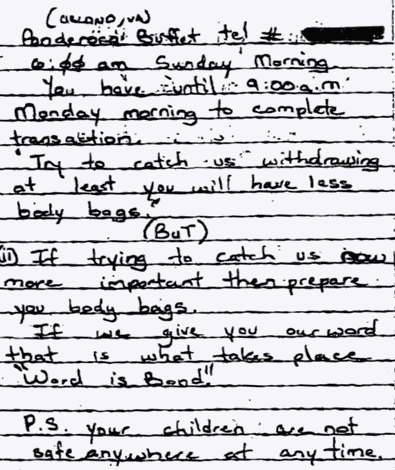 (ASHLAND, VA)
Ponderosa Buffet tel #
6:00 am Sunday Morning
You have until 9:00 a.m.
Monday morning to complete
transaction.
"Try to catch us withdrawing
at least you will have less
body bags."
(BuT)
(ii) If trying to catch us now
more important then prepare
you body bags.
If we give you our word
that is what takes place
"Word is Bond."
P.S. your children are not
safe anywhere at any time.